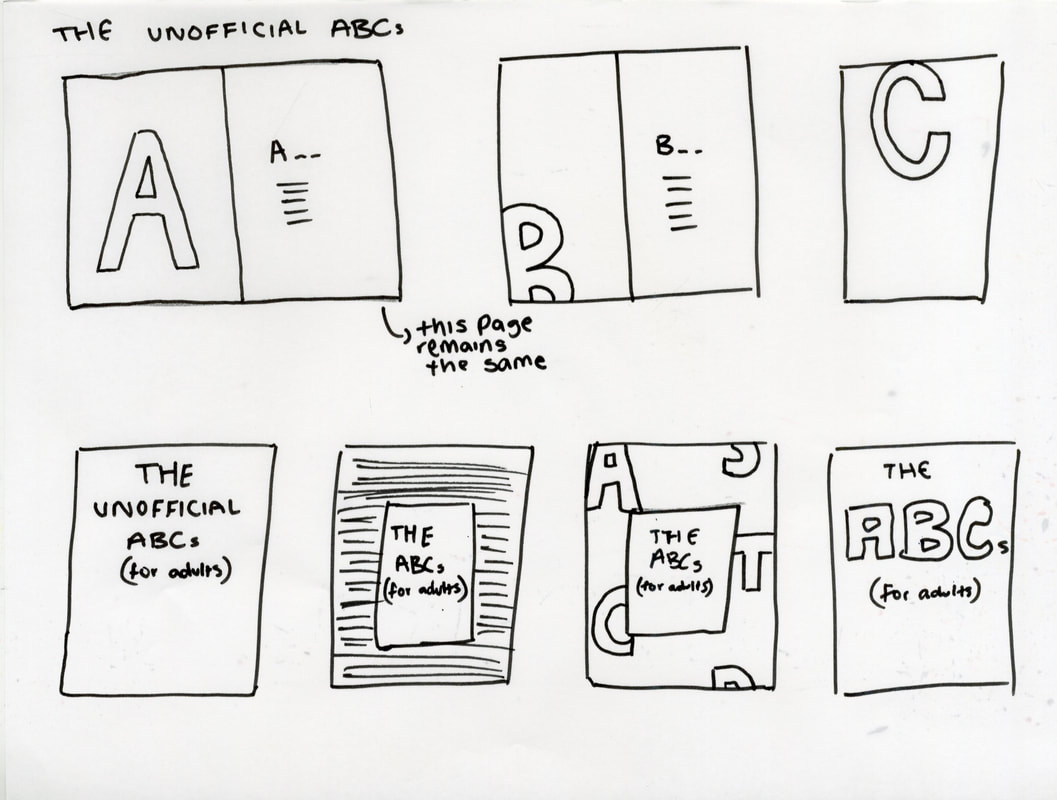 THE UNOFFICIAL ABCs
A
A--
B
B--
C
this page
remains
the same
THE
UNOFFICIAL
ABCs
(for adults)
THE
ABCs
(for adults)
A
THE
ABCs
(for adults)
T
C
THE
ABCs
(for adults)